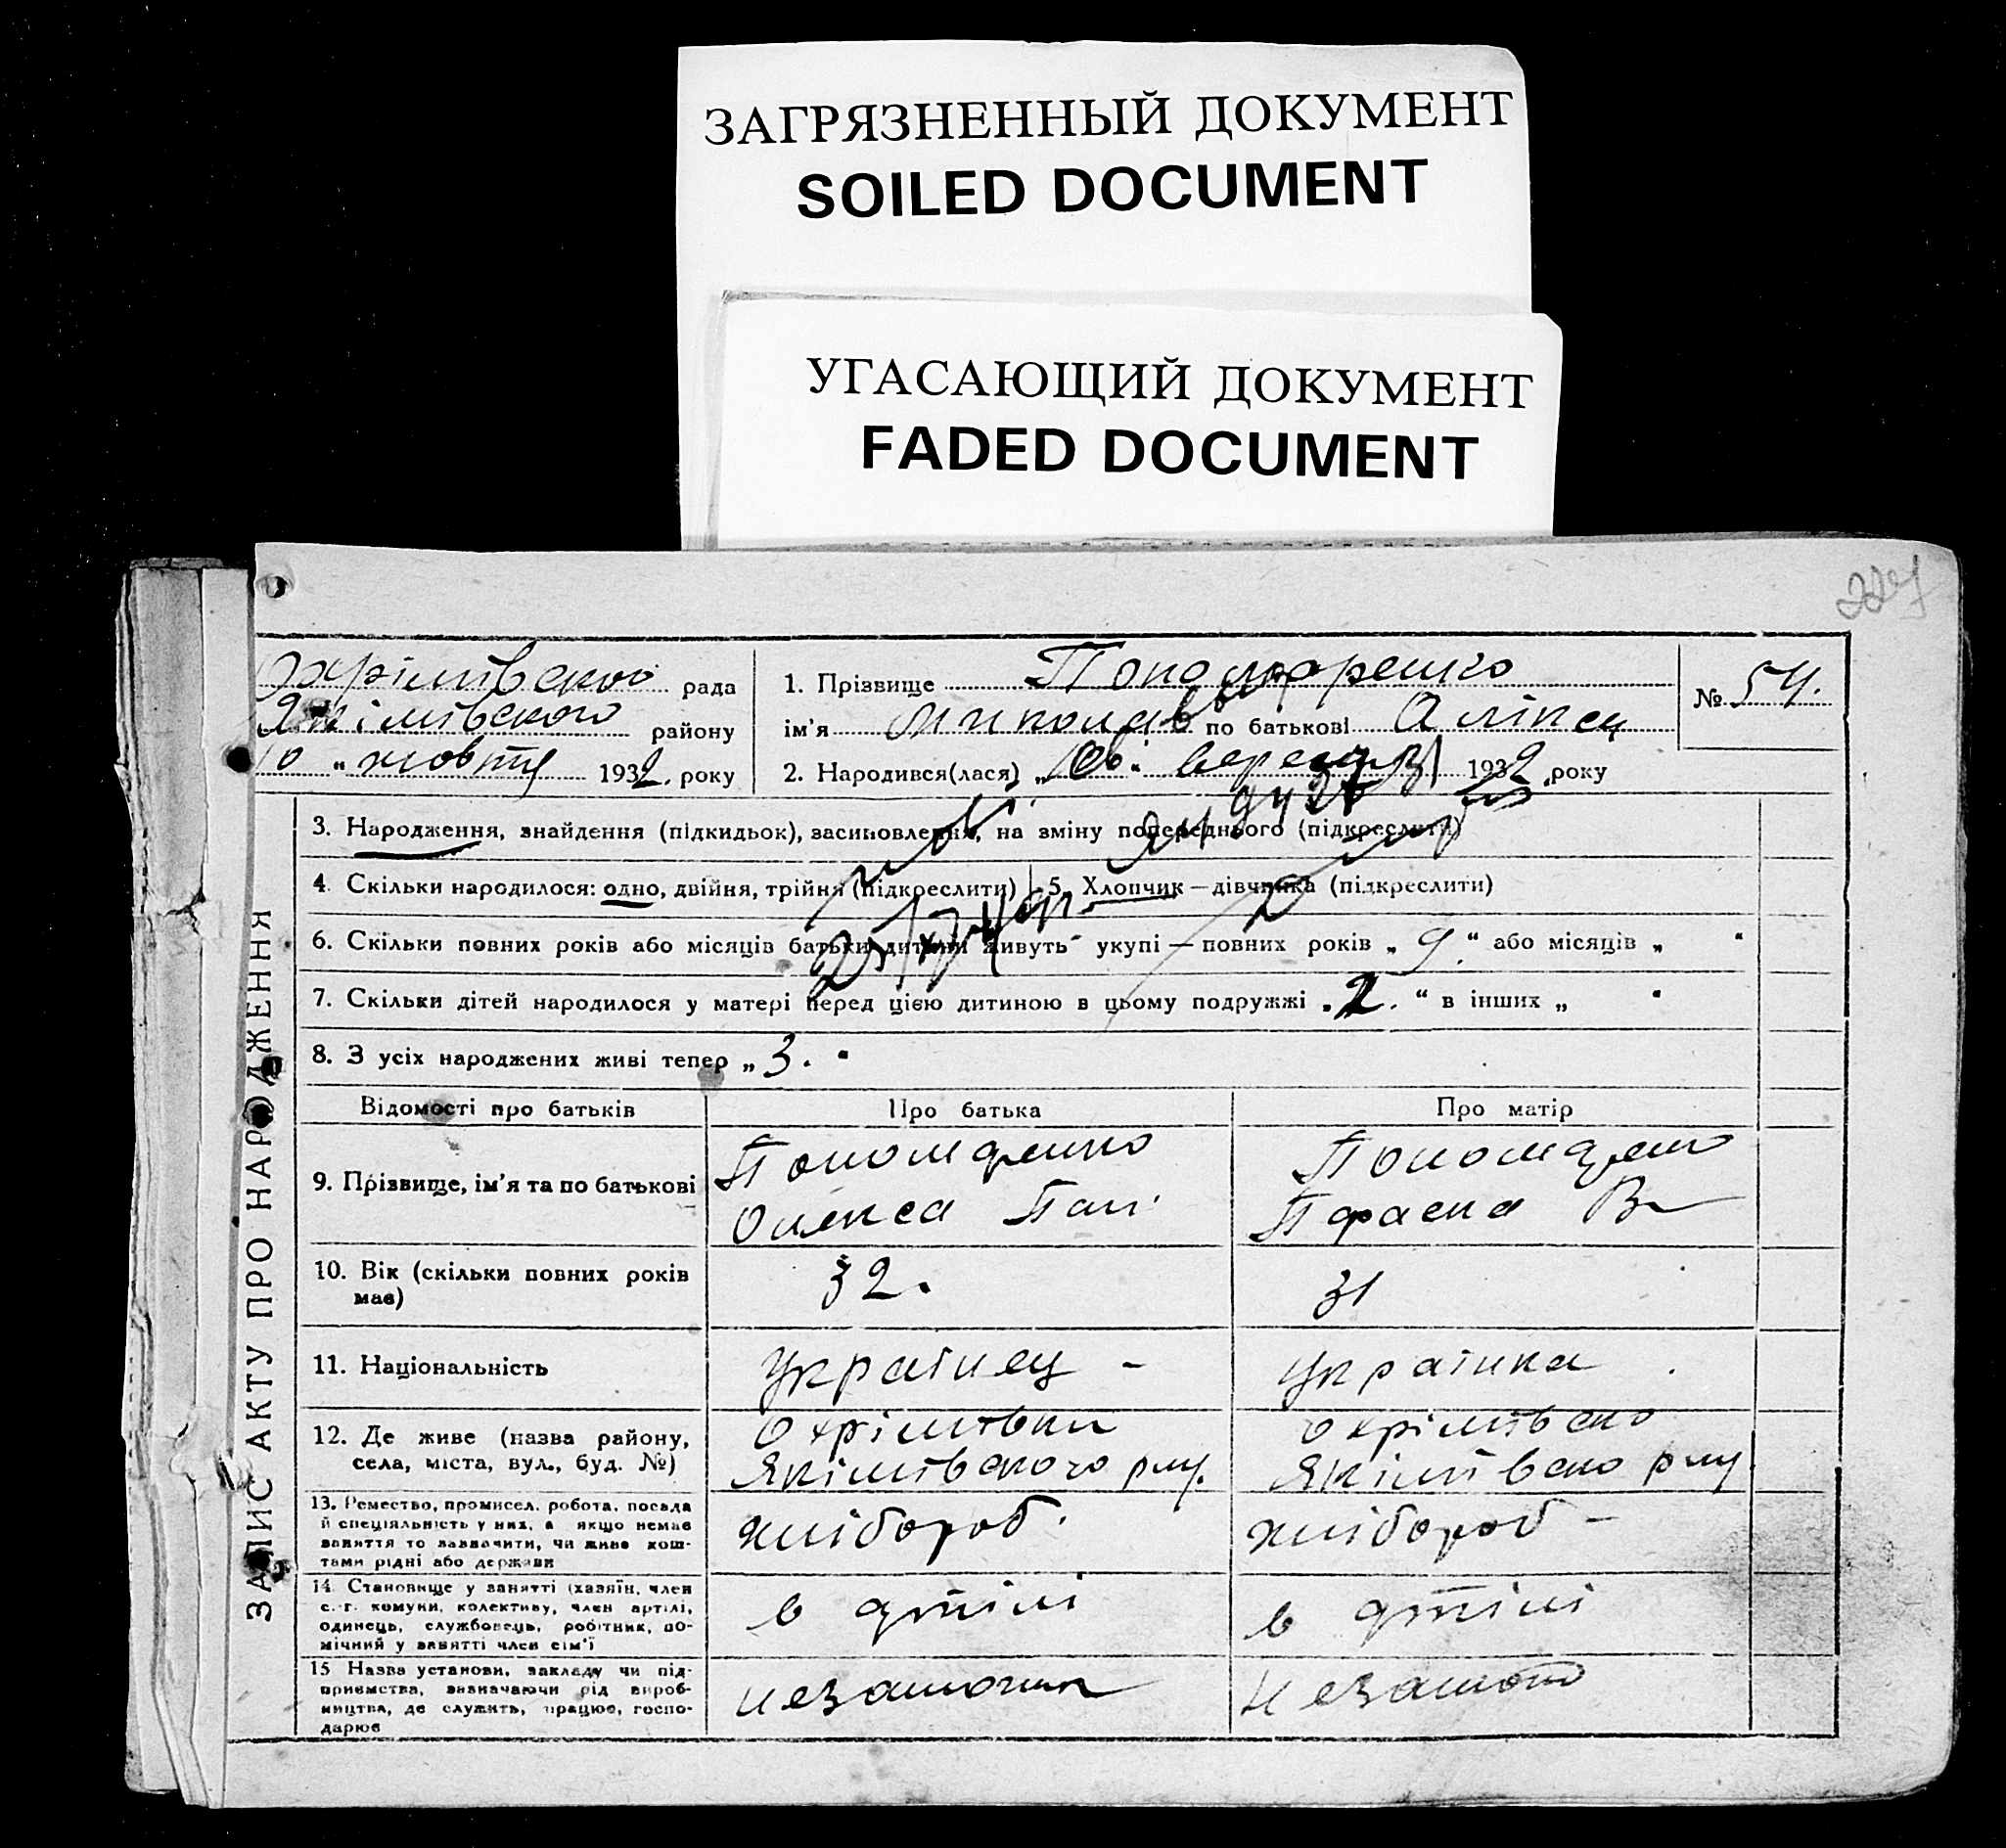 ЗАГРЯЗНЕННЫЙ ДОКУМЕНТ
SOILED DOCUMENT
УГАСАЮЩИЙ ДОКУМЕНТ
FADED DOCUMENT
Охрімівської рада
Якімівского району
10 „ жовтня 1932. року
1. Прізвище Пономаренко
ім'я Микола по батькові
2. Народився(лася) 1932 року
№ 54.
ЗАПИС АКТУ ПРО НАРОДЖЕННЯ
3. Народження, знайдення (підкидьок), засиновлення, на зміну попереднього (підкреслити)
4. Скільки народилося: одно, двійня, трійня (підкреслити)
5. Хлопчик — дівчинка (підкреслити)
6. Скільки повних років або місяців батьки дитини живуть укупі — повних років „ 9. “ або місяців „ “
7. Скільки дітей народилося у матері перед цією дитиною в цьому подружжі „ 2. “ в інших „ “
8. З усіх народжених живі тепер „ 3. “
Відомості про батьків
Про батька
Про матір
9. Прізвище, ім'я та по батькові
Пономаренко
Олекса
Пономаренко
Параска
10. Вік (скільки повних років
має)
32.
31
11. Національність
Українец -
українка
12. Де живе (назва району,
села, міста, вул., буд. №)
Охрімівки
Якімівского
Охрімівско
Якімівско
13. Ремество, промисел, робота, посада
й спеціяльність у них, а якщо немає
заняття то зазначити, чи живе кош-
тами рідні або держави
хлібороб.
хлібороб -
14. Становище у занятті (хазяїн, член
с.-г. комуни, колективу, член артілі,
одинець, службовець, робітник, по-
мічний у занятті член сім'ї
в артілі
в артілі
15 Назва установи, закладу чи під-
приємства, зазначаючи рід вироб-
ництва, де служить, працює, госпо-
дарює
незаможник